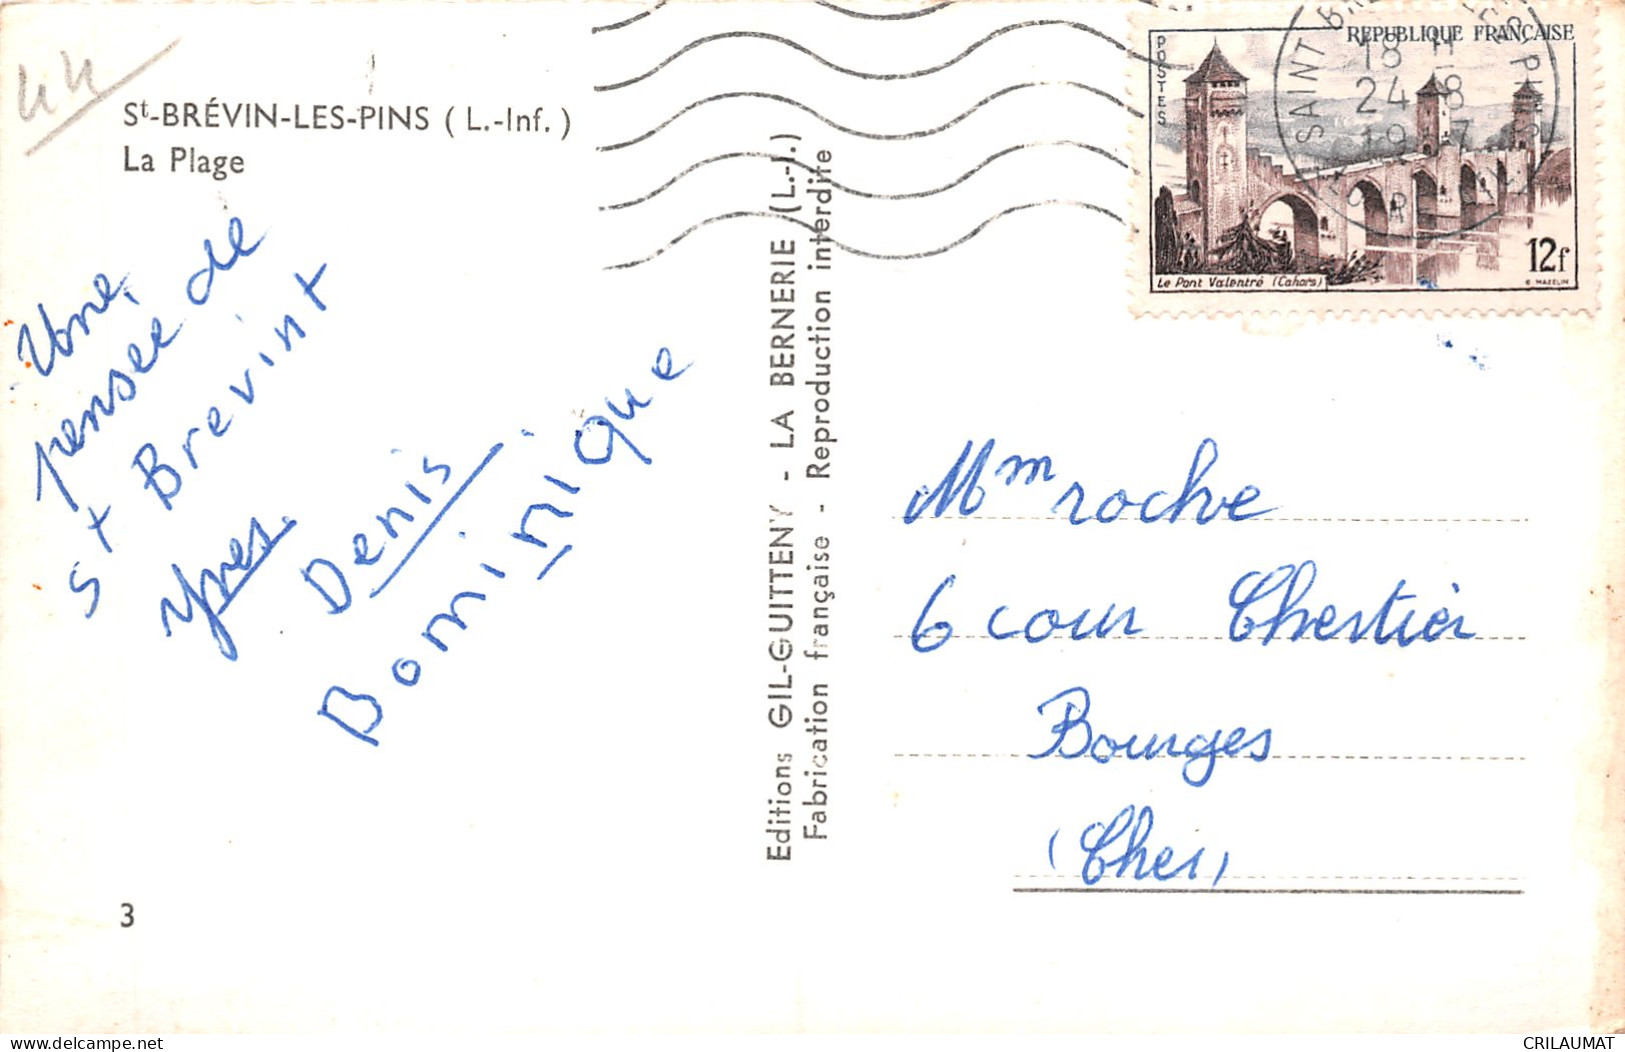 44
St-BRÉVIN-LES-PINS (L.-Inf.)
La Plage
Une
pensée de
St Brevint
Yves.
Denis.
Dominique
3
Editions GIL-GUITTENY - LA BERNERIE (L.-I.)
Fabrication française - Reproduction interdite
REPUBLIQUE FRANÇAISE
POSTES
Le Pont Valentré (Cahors)
12f
E. MAZELIN
SAINT
18 H
24 8
19 7
Mme roche
6 cour Chertier
Bourges
(Cher)
CRILAUMAT